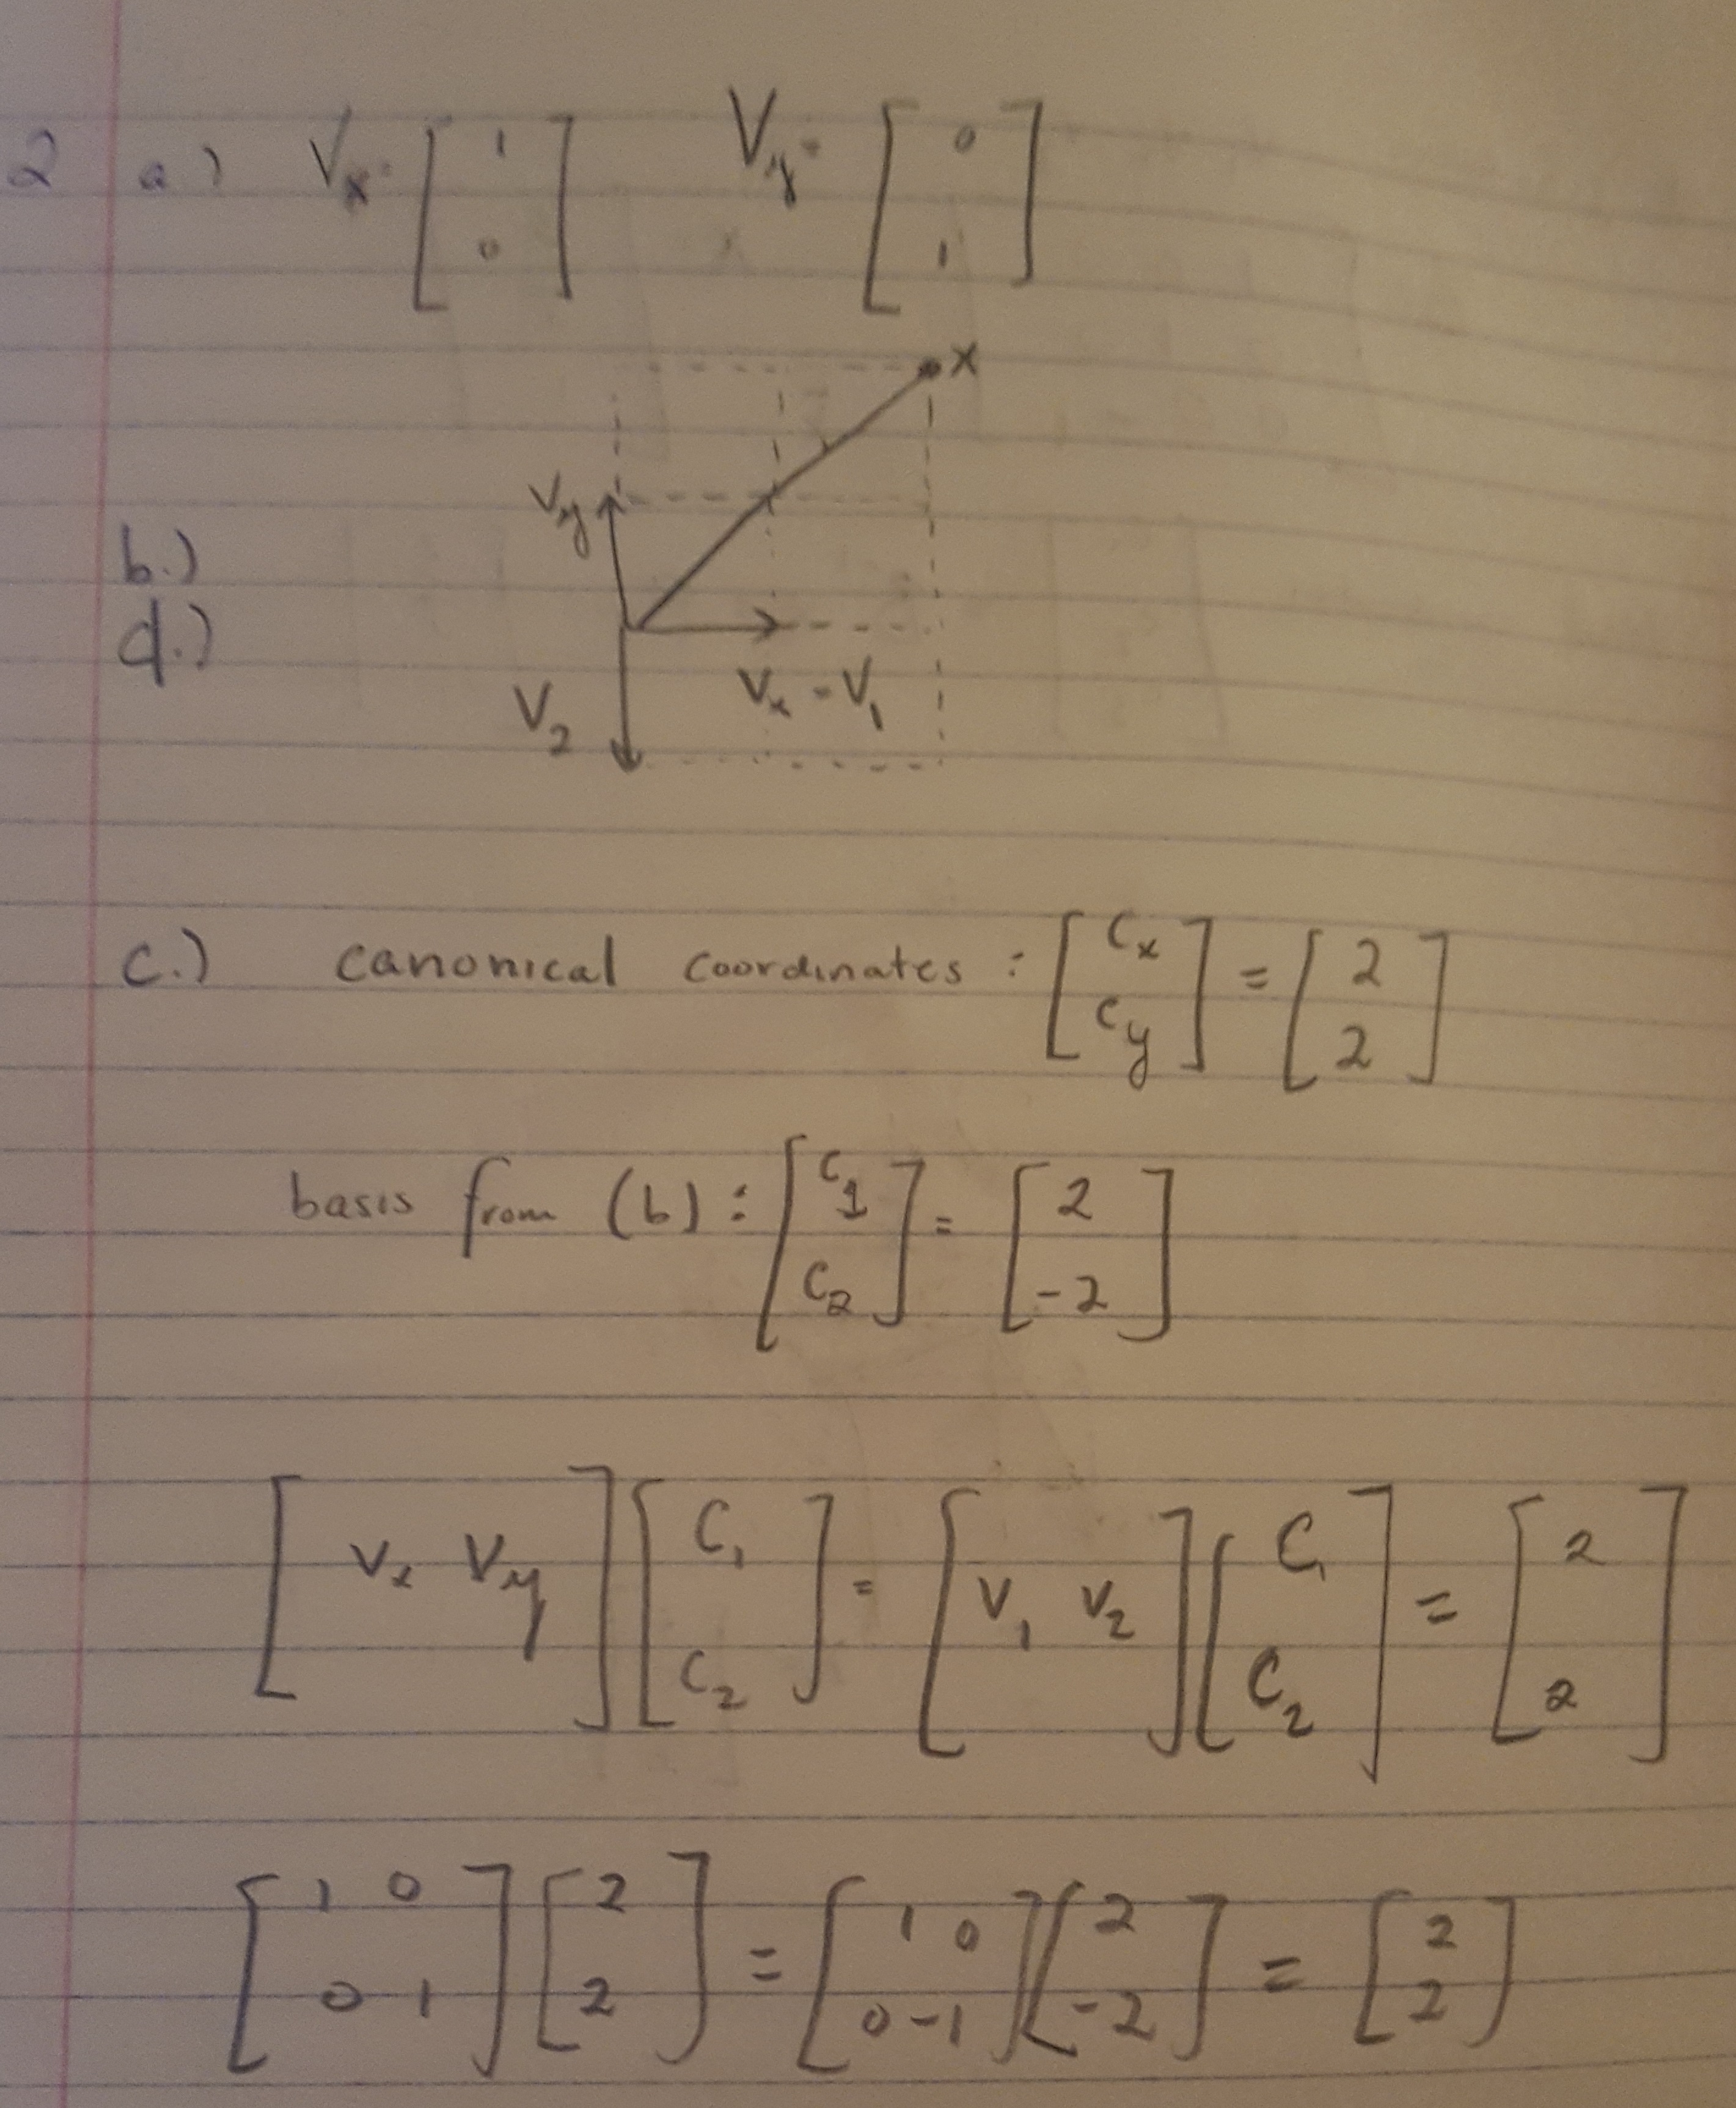 2 a.) Vx = [ 1 0 ] Vy = [ 0 1 ]
x
Vy
b.)
d.)
Vx = V1
V2
c.) canonical coordinates : [ Cx Cy ] = [ 2 2 ]
basis from (b) : [ C1 C2 ] = [ 2 -2 ]
[ Vx Vy ] [ C1 C2 ] = [ V1 V2 ] [ C1 C2 ] = [ 2 2 ]
[ 1 0 0 1 ] [ 2 2 ] = [ 1 0 0 -1 ] [ 2 -2 ] = [ 2 2 ]